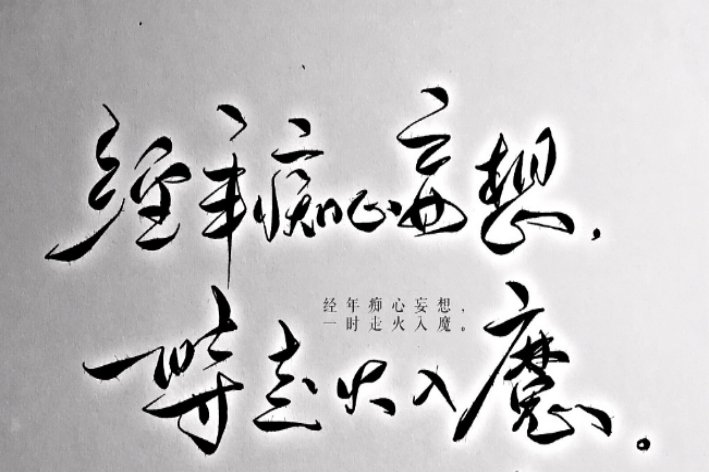 經年痴心妄想，
一時走火入魔。
经年痴心妄想，
一时走火入魔。